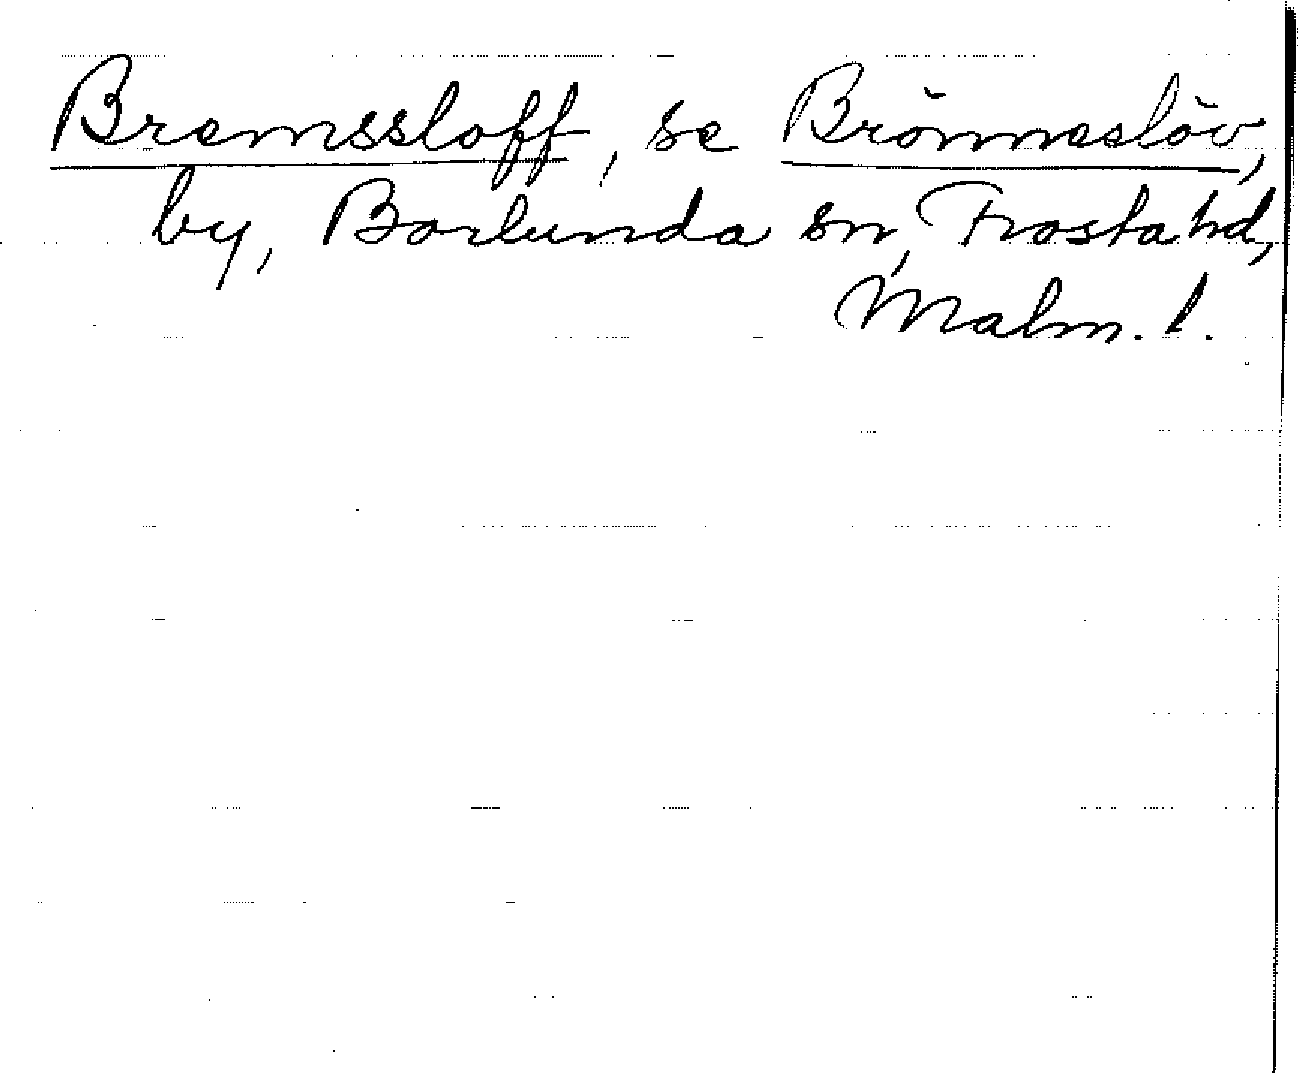 Bremssloff, se Brönneslöv,
by, Borlunda sn, Frosta hd,
Malm. l.